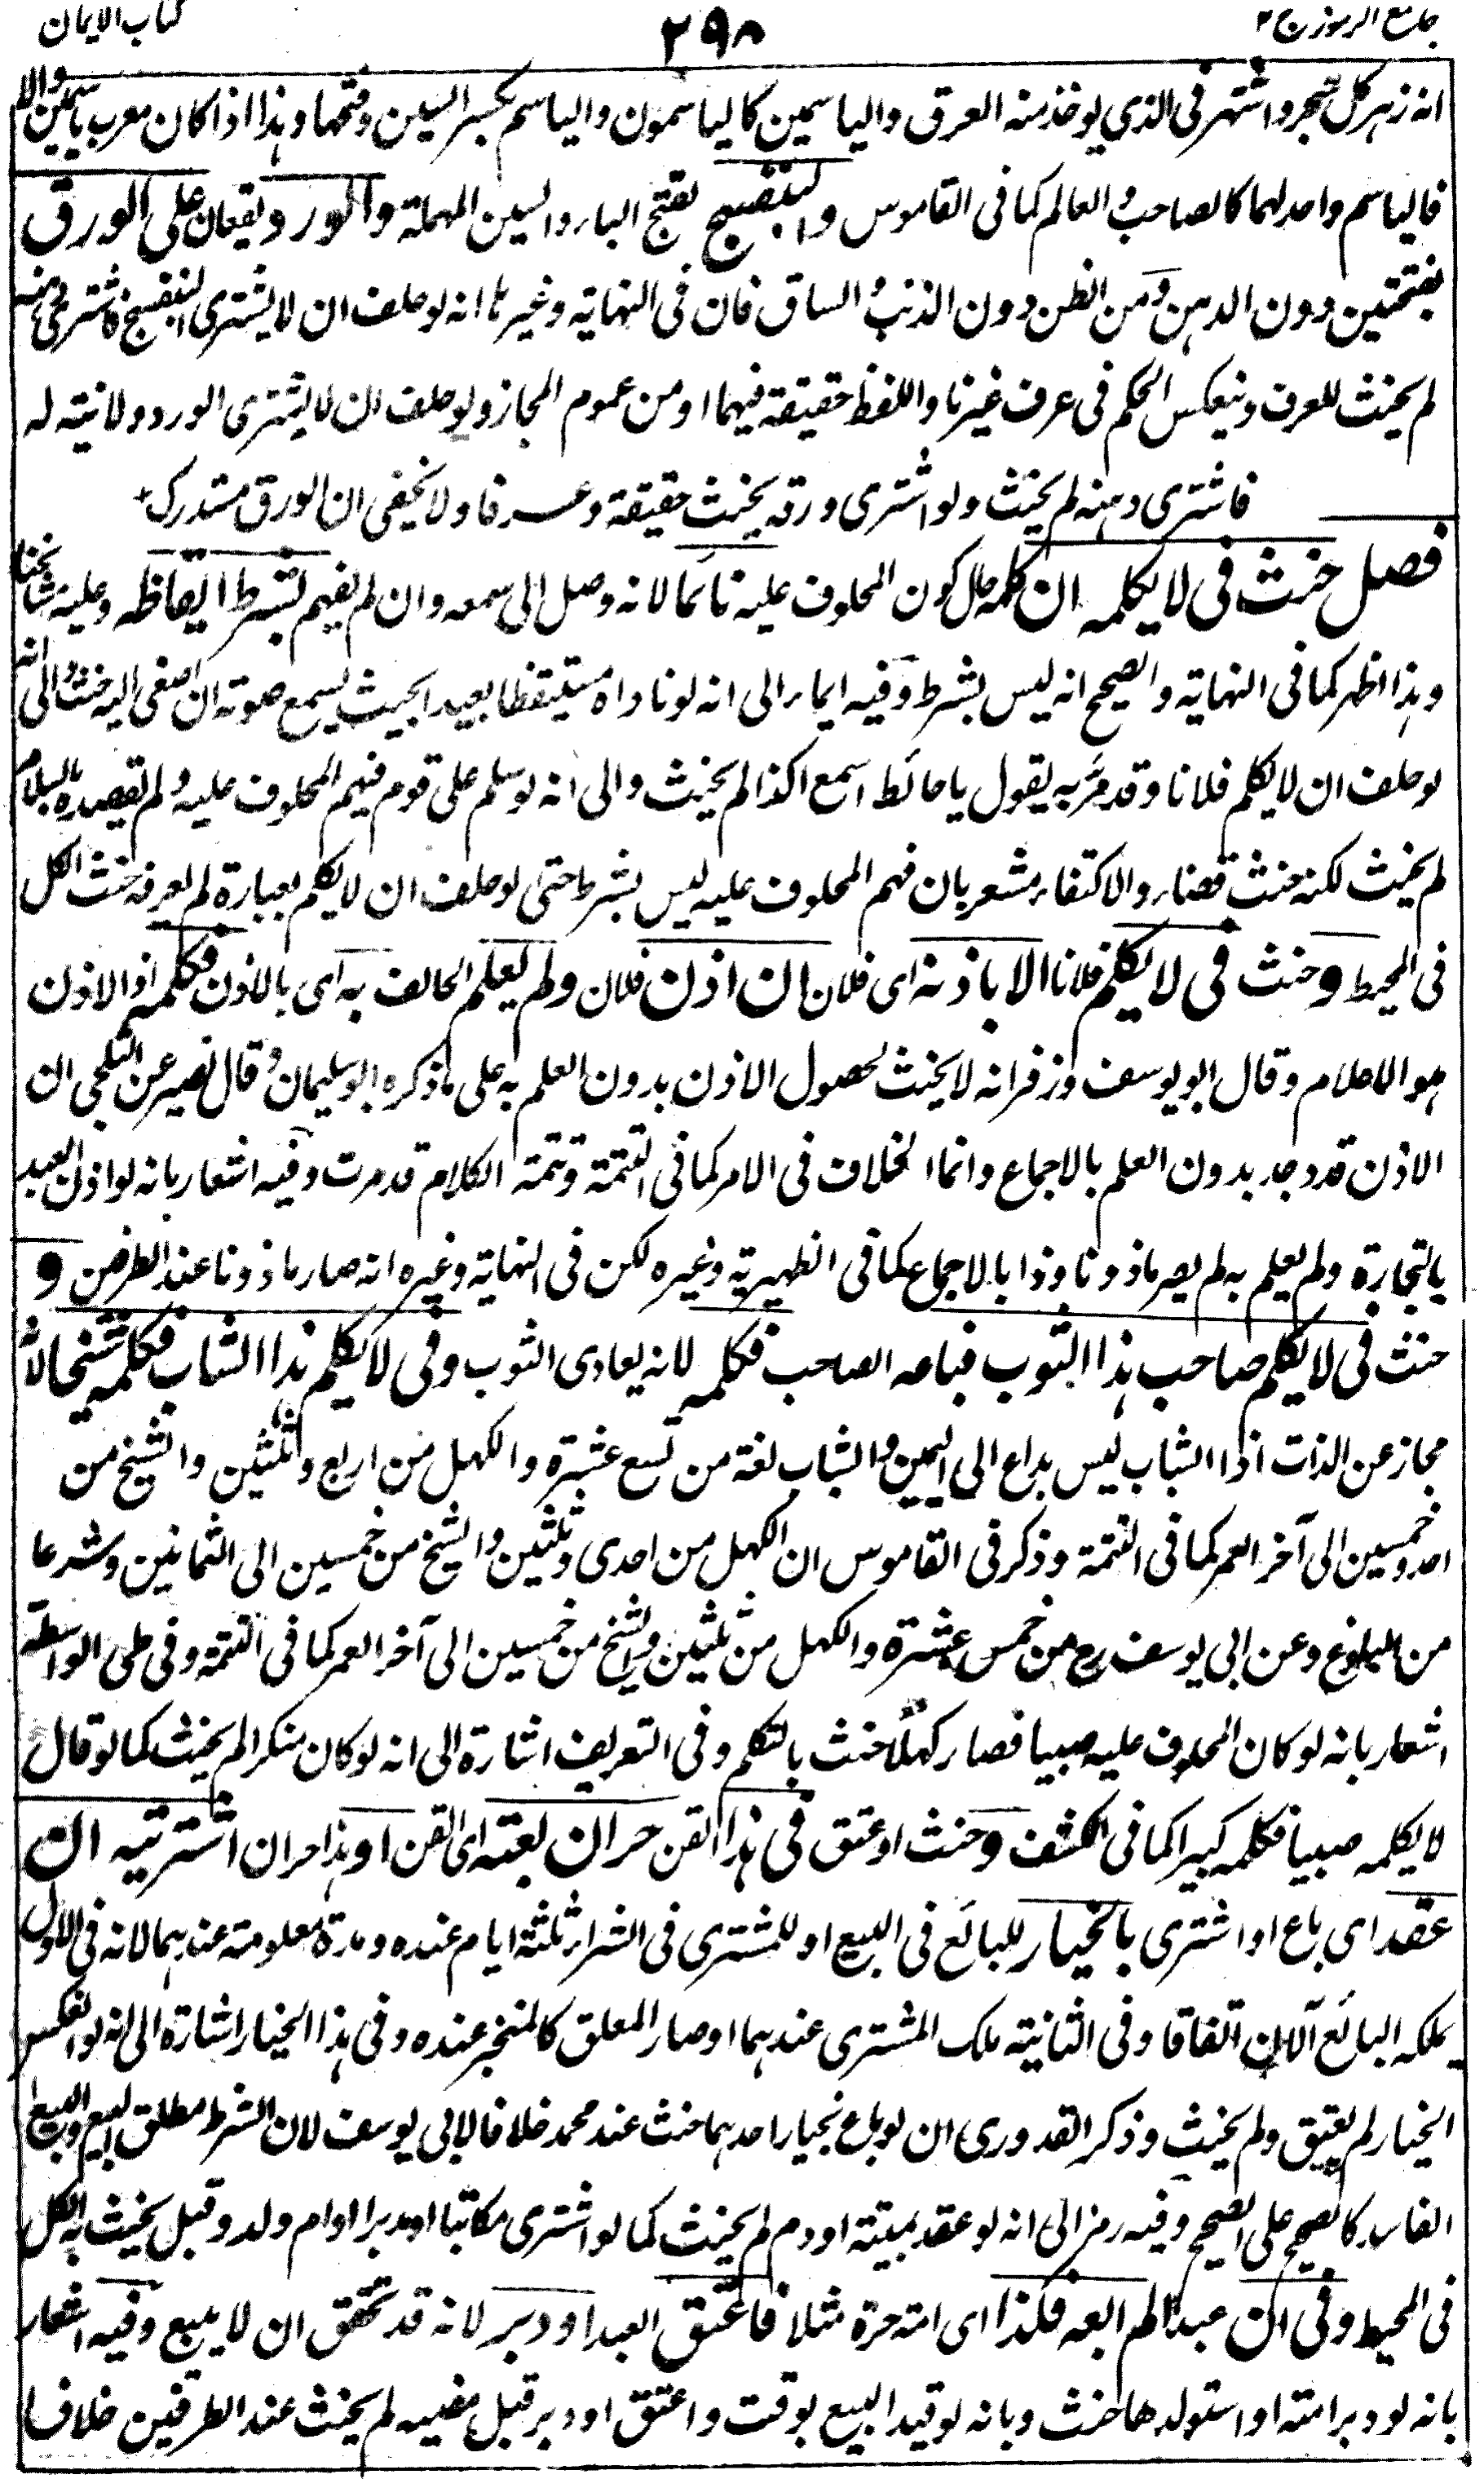 جامع الرموز ج ٢
٢٩٨
كتاب الايمان
انه زهر كل شجر واشتهر فى الذي يوخذ منه العرق والياسمين كالياسمون والياسم بكسر السين وفتحها وهذا اذا كان معرب ياسمين والا
فالياسم واحد لهما كالصاحب والعالم كما فى القاموس والبنفسج بفتح الباء والسين المهملة والورد يقعان على الورق
بفتحتين دون الدهن ومن الظن دون الذنب والساق فان فى النهاية وغيرها انه لو حلف ان لا يشترى البنفسج فاشترى دهنه
لم يحنث للعرف وينعكس الحكم فى عرف غيرنا واللفظ حقيقة فيهما او من عموم المجاز ولو حلف ان لا يشترى الورد ولا نية له
فاشترى دهنه لم يحنث ولو اشترى ورقه يحنث حقيقة وعرفا ولا يخفى ان الورق مستدرك
فصل حنث فى لا يكلمه ان كلمه حال كون المحلوف عليه نائما لانه وصل الى سمعه وان لم يفهم بشرط ايقاظه وعليه مشائخنا
وهذا اظهر كما فى النهاية والصحيح انه ليس بشرط وفيه ايماء الى انه لو ناداه مستيقظا بعيدا بحيث يسمع صوته ان اصغى اليه حنث والى انه
لو حلف ان لا يكلم فلانا وقد مر به يقول يا حائط اسمع اكذا لم يحنث والى انه لو سلم على قوم فيهم المحلوف عليه ولم يقصده بالسلام
لم يحنث لكنه حنث قضاء والاكتفاء مشعر بان فهم المحلوف عليه ليس بشرط حتى لو حلف ان لا يكلم بعبارة لم يعرفه حنث الكل
فى المحيط وحنث فى لا يكلم فلانا الا باذنه اى فلان ان اذن فلان ولم يعلم الحالف به اى بالاذن فكلمه اذ الاذن
هو الاعلام وقال ابو يوسف وزفر انه لا يحنث لحصول الاذن بدون العلم به على ما ذكره ابو سليمان وقال نصير عن البلخى ان
الاذن قد وجد بدون العلم بالاجماع وانما الخلاف فى الامر كما فى التتمة وتتمة الكلام قد مرت وفيه اشعار بانه لو اذن العبد
بالتجارة ولم يعلم به لم يصر ماذونا وذا بالاجماع كما فى الظهيرية وغيره لكن فى النهاية وغيره انه صار ماذونا عند الطرفين و
حنث فى لا يكلم صاحب هذا الثوب فباعه الصاحب فكلمه لانه يعادى الثوب وفى لا يكلم هذا الشاب فكلمه شيخا لانه
مجاز عن الذات اذ الشاب ليس بداع الى اليمين والشاب لغة من تسع عشرة والكهل من اربع وثلثين والشيخ من
احد وخمسين الى آخر العمر كما فى التتمة وذكر فى القاموس ان الكهل من احدى وثلثين والشيخ من خمسين الى الثمانين وشرعا
من البلوغ وعن ابى يوسف رح من خمس عشرة والكهل من ثلثين والشيخ من خمسين الى آخر العمر كما فى التتمة وفى طى الواسطة
اشعار بانه لو كان المحلوف عليه صبيا فصار كهلا حنث بالتكلم وفى التعريف اشارة الى انه لو كان منكرا لم يحنث كما لو قال
لا يكلمه صبيا فكلمه كبيرا كما فى الكشف وحنث او عتق فى هذا القن حر ان بعته اى القن او هذا حر ان اشتريته ان
عقد اى باع او اشترى بالخيار للبائع فى البيع او للمشترى فى الشراء ثلثة ايام عنده ومدة معلومة عندهما لانه فى الاول
يملكه البائع الآن اتفاقا وفى الثانية ملك المشترى عندهما او صار المعلق كالمنجز عنده وفى هذا الخيار اشارة الى انه لو انعكس
الخيار لم يعتق ولم يحنث وذكر القدورى ان لو باع بخيار احدهما حنث عند محمد خلافا لابى يوسف لان الشرط مطلق البيع والبيع
الفاسد كالصحيح على الصحيح وفيه رمز الى انه لو عقد بميتة او دم لم يحنث كما لو اشترى مكاتبا او مدبرا او ام ولد وقيل يحنث به الكل
فى المحيط وفى ان عبدا لم ابعه فكذا اى امته حرة مثلا فاعتق العبد او دبر لانه قد تحقق ان لا يبيع وفيه اشعار
بانه لو دبر امته او استولدها حنث وبانه لو قيد البيع بوقت واعتق او دبر قبل مضيه لم يحنث عند الطرفين خلافا